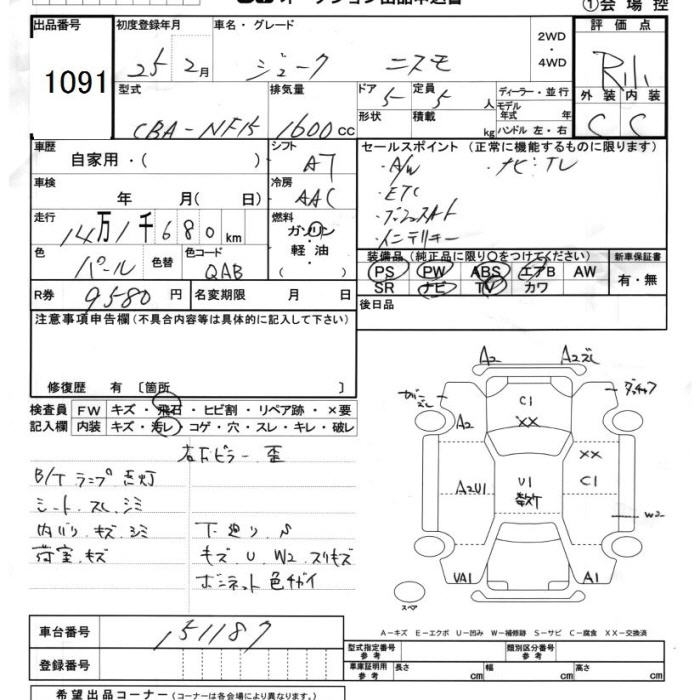 ①会場控
出品番号
初度登録年月
車名・グレード
評価点
1091
25年2月
ジューク ニスモ
2WD
・
4WD
R
型式
排気量
ドア
定員
ディーラー・並行
外装 内装
CBA-NF15
1600cc
5
5人
モデル年式 年
C C
形状
積載 kg
ハンドル 左・右
車歴
自家用・( )
シフト
A7
セールスポイント (正常に機能するものに限ります)
・A/W ・ナビ・TV
・ETC
・プッシュスタート
・インテリキー
車検
年 月( 日)
冷房
AAC
走行
14万1千680km
燃料
ガソリン
軽油
( )
色
パール
色替
色コード
QAB
装備品(純正品に限り○をつけてください)
新車保証書
PS PW ABS エアB AW
SR ナビ TV カワ
有・無
R券
9580円
名変期限 月 日
後日品
注意事項申告欄(不具合内容等は具体的に記入して下さい)
修復歴 有〔箇所 〕
検査員
記入欄
FW キズ・飛石・ヒビ割・リペア跡・×要
内装 キズ・汚レ・コゲ・穴・スレ・キレ・破レ
右Fピラー歪
B/Tランプ点灯
シート.スレ.シミ
内バリ.キズ.シミ
荷室.キズ
下廻り.サ
キズ U W2 スリキズ
ボンネット色チガイ
A2
A2ズレ
ガバーズレ
ダッチャク
C1
XX
A2
XX
C1
A2U1
U1
数ケ
W2
VA1
A1
スペア
A-キズ E-エクボ U-凹み W-補修跡 S-サビ C-腐食 XX-交換済
車台番号
151187
登録番号
型式指定番号
参考
類別区分番号
参考
車庫証明用
参考
長さ cm
幅 cm
高さ cm
希望出品コーナー(コーナーは各会場により異なります。)